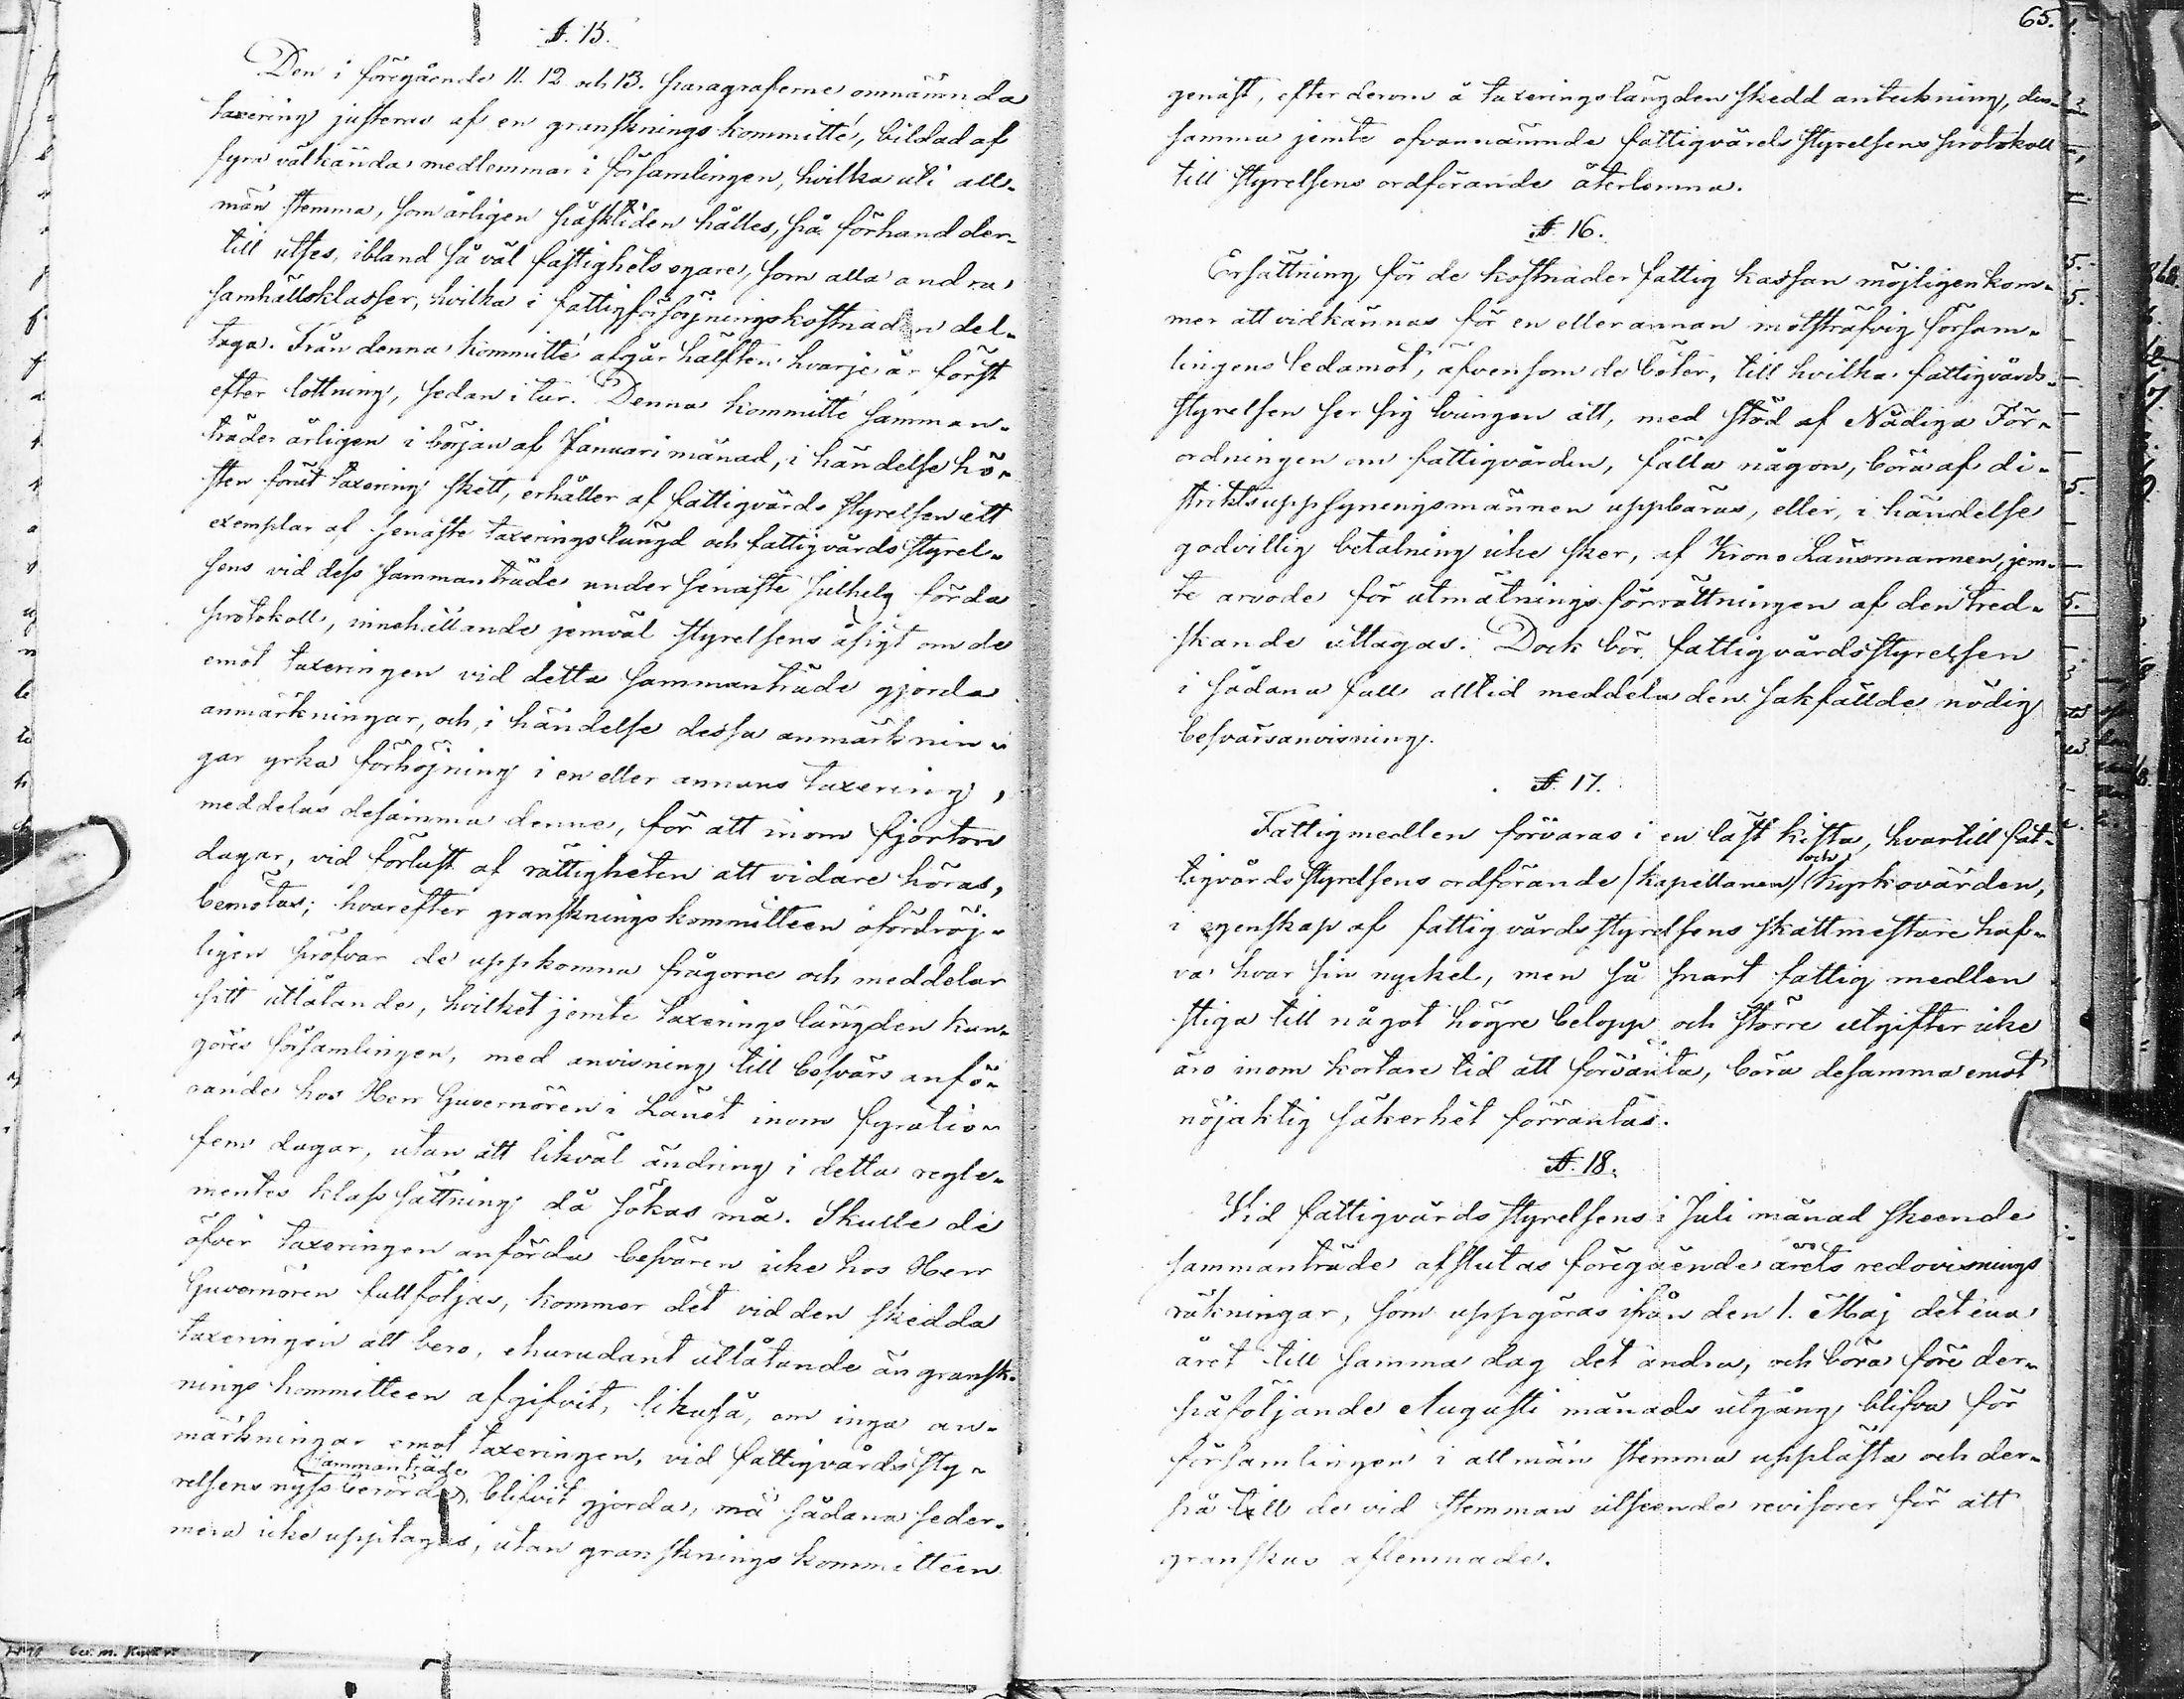 §. 15.
Den i föregående 11. 12 och 13. paragraferne omnämnda
taxering justeras af en gransknings kommitté, bildad af
fyra välkända medlemmar i församlingen, hvilka uti all-
män stemma, som årligen påsktiden hålles, på förhand der-
till utses, ibland så väl fastighets egare, som alla andra
samhällsklasser, hvilka i fattigförsörjningskostnaden del-
taga. Från denna kommitté afgår hälften hvarje år först
efter lottning, sedan i tur. Denna kommitté samman-
träder årligen i början af Januari månad, i händelse hö-
sten förut taxering skett, erhåller af fattigvårds styrelsen ett
exemplar af senaste taxeringslängd och fattigvårds styrel-
sens vid dess sammanträde under senaste julhelg förda
protokoll, innehållande jemväl styrelsens åsigt om de
emot taxeringen vid detta sammanträde gjorda
anmärkningar, och, i händelse dessa anmärknin-
gar yrka förhöjning i en eller annans taxering,
meddelas desamma denne, för att inom fjorton
dagar, vid förlust af rättigheten att vidare höras,
bemötas; hvarefter granskningskommitteen ofördröj-
ligen pröfvar de uppkomna frågorne och meddelar
sitt utlåtande, hvilket jemte taxeringslängden kun-
göres församlingen, med anvisning till besvärs anfö-
rande hos Herr Guvernören i Länet inom fyratio-
fem dagar, utan att likväl ändring i detta regle-
mentes klasssättning då sökas må. Skulle de
öfver taxeringen anförda besvären icke hos Herr
Guvernören fullföljas, kommer det vid den skedda
taxeringen att bero, ehurudant utlåtande än gransk-
nings kommitteen afgifvit, likaså, om inga an-
märkningar emot taxeringen, vid fattigvårds sty-
sammanträde
relsens nyss berörde, blifvit gjorda, må sådana seder-
mera icke upptagas, utan gransknings kommitteen
65.
genast, efter derom å taxeringslängden skedd anteckning, den-
samma jemte ofvannämnde fattigvårds styrelsens protokoll
till styrelsens ordförande återlemna.
§. 16.
Ersättning för de kostnader fattig kassan möjligen kom-
mer att vidkännas för en eller annan motsträfvig försam-
lingens ledamot, äfvensom de böter, till hvilka fattigvårds-
styrelsen ser sig tvungen att, med stöd af Nådiga För-
ordningen om fattigvården, fälla någon, böra af di-
striktsuppsyningsmännen uppbäras, eller, i händelse
godvillig betalning icke sker, af Krono Länsmannen, jem-
te arvode för utmätningsförrättningen af den tred-
skande uttagas. Dock bör fattigvårdsstyrelsen
i sådana fall alltid meddela den sakfällde nödig
besvärsanvisning.
§. 17.
Fattigmedlen förvaras i en låst kista, hvartill fat-
och
tigvårdsstyrelsens ordförande (kapellanen) kyrkovärden,
i egenskap af fattigvårds styrelsens skattmestare haf-
va hvar sin nyckel, men så snart fattig medlen
stiga till något högre belopp och större utgifter icke
äro inom kortare tid att förvänta, böra desamma emot
nöjaktig säkerhet förräntas.
§. 18.
Vid fattigvårds styrelsens i Juli månad skeende
sammanträde afslutas föregående årets redovisnings
räkningar, som uppgöras ifrån den 1. Maj det ena
året till samma dag det andra, och böra före der-
påföljande Augusti månads utgång blifva för
församlingen i allmän stemma upplästa och der-
på till de vid stemman utseende revisorer för att
granskas aflemnade.